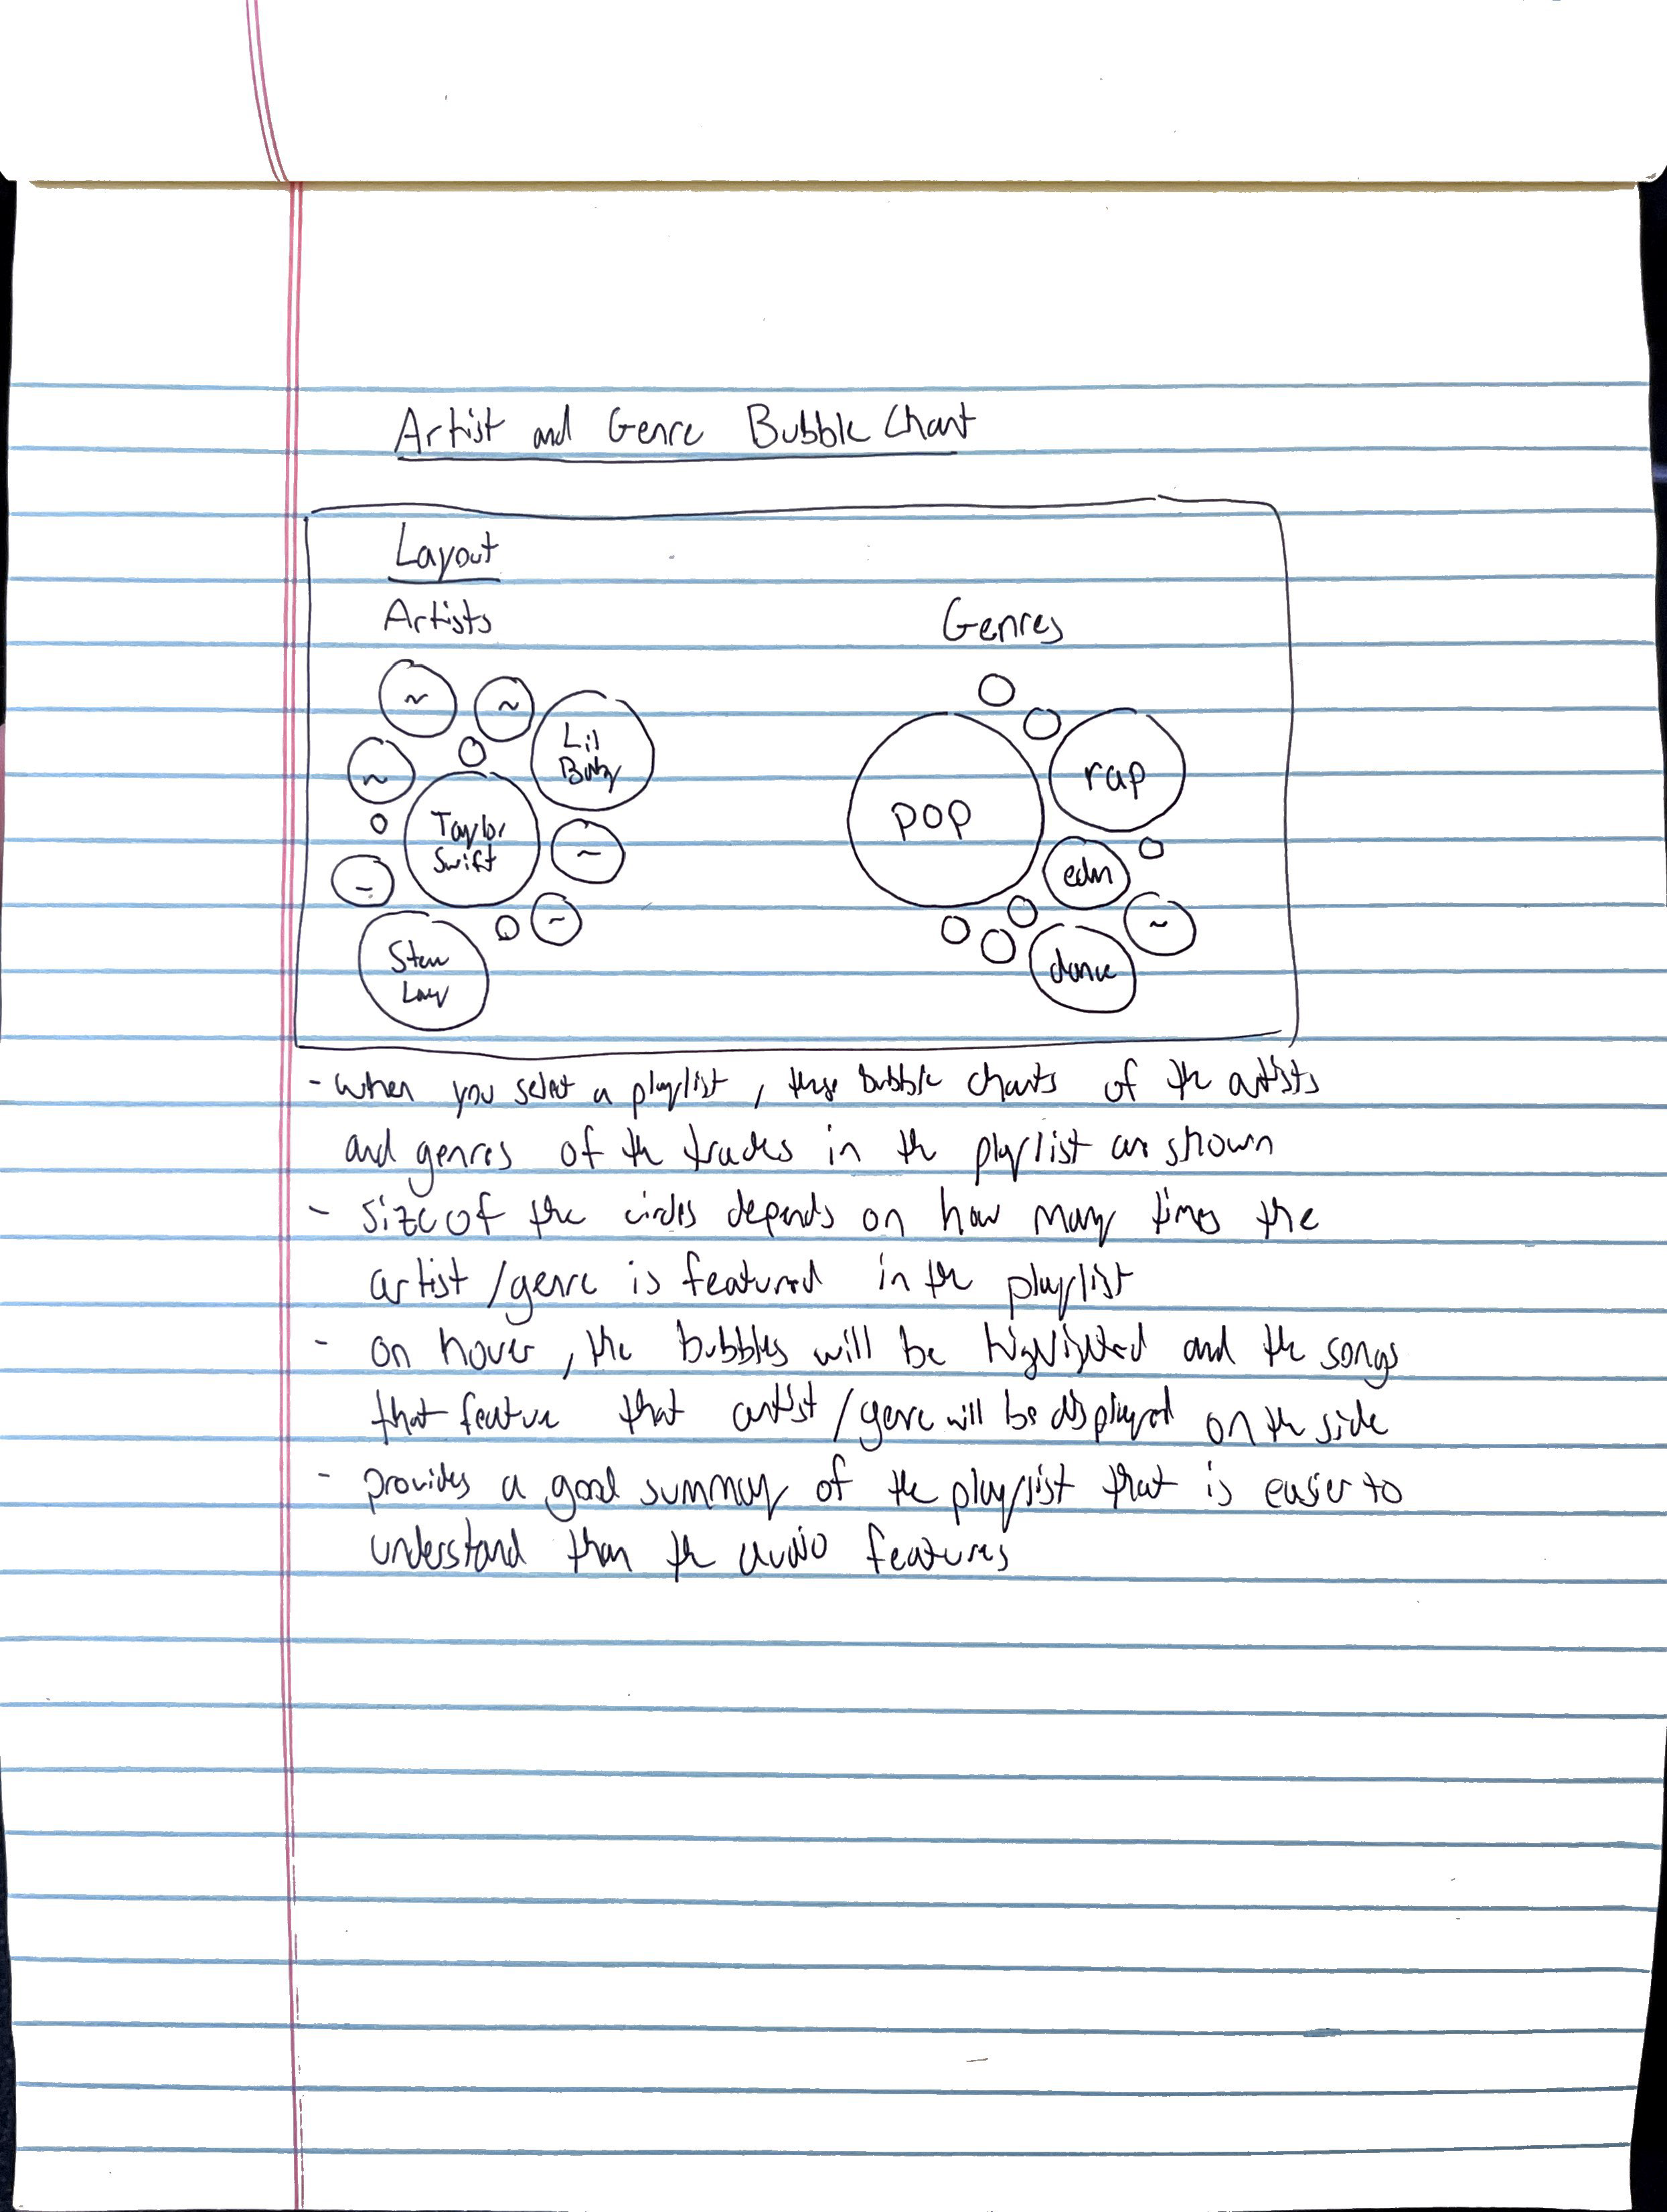 Artist and Genre Bubble Chart
Layout
Artists
Genres
~
~
Lil
Baby
~
Taylor
Swift
~
~
~
Lauv
pop
rap
edm
~
dance
- when you select a playlist, these bubble charts of the artists
and genres of the tracks in the playlist are shown
- size of the circles depends on how many times the
artist/genre is featured in the playlist
- on hover, the bubbles will be highlighted and the songs
that feature that artist/genre will be displayed on the side
- provides a good summary of the playlist that is easier to
understand than the audio features